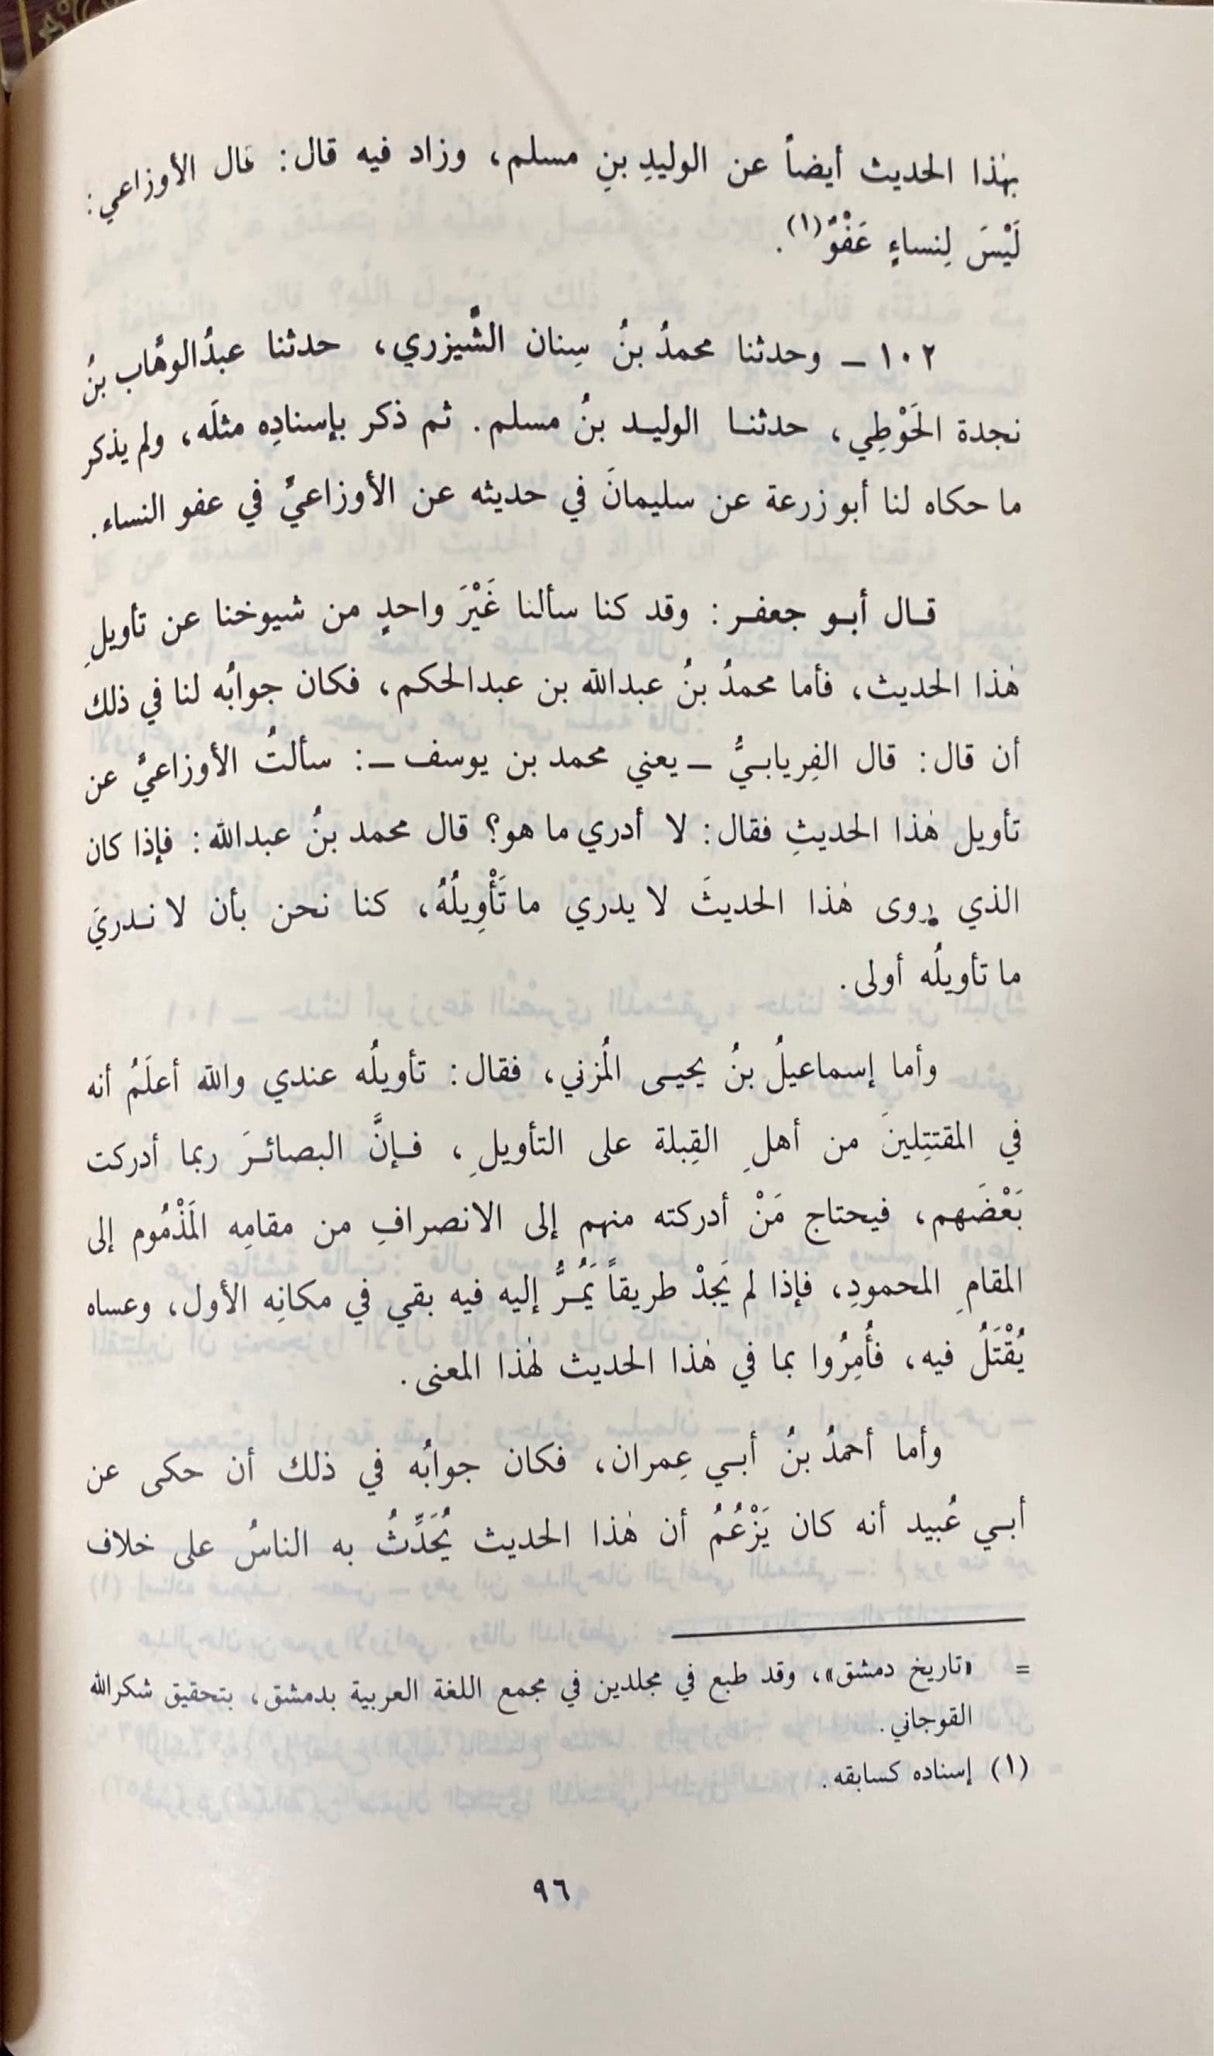 بهٰذا الحديث أيضاً عن الوليدِ بنِ مسلم، وزاد فيه قال: قال الأوزاعي:
لَيْسَ لِنساءٍ عَفْوٌ(١).
١٠٢ ـ وحدثنا محمدُ بنُ سِنان الشَّيزري، حدثنا عبدُالوهَّاب بنُ
نجدة الحَوْطِي، حدثنا الوليد بنُ مسلم. ثم ذكر بإسنادِه مثلَه، ولم يذكر
ما حكاه لنا أبو زرعة عن سليمانَ في حديثه عن الأوزاعيِّ في عفو النساء.
قال أبو جعفر: وقد كنا سألنا غَيْرَ واحدٍ من شيوخنا عن تأويلِ
هٰذا الحديث، فأما محمدُ بنُ عبدالله بن عبدالحكم، فكان جوابُه لنا في ذلك
أن قال: قال الفِريابيُّ ـ يعني محمد بن يوسف ـ: سألتُ الأوزاعيَّ عن
تأويل هٰذا الحديثِ فقال: لا أدري ما هو؟ قال محمد بنُ عبدالله: فإذا كان
الذي روى هٰذا الحديثَ لا يدري ما تَأْوِيلُهُ، كنا نحن بأن لا ندريَ
ما تأويلُه أولى.
وأما إسماعيلُ بنُ يحيى المُزني، فقال: تأويلُه عندي والله أعلَمُ أنه
في المقتتِلينَ من أهلِ القِبلة على التأويلِ، فإنَّ البصائرَ ربما أدركت
بَعْضَهم، فيحتاج مَنْ أدركته منهم إلى الانصرافِ من مقامِه المَذْمُوم إلى
المقامِ المحمودِ، فإذا لم يَجِدْ طريقاً يَمُرُّ إليه فيه بقي في مكانِه الأول، وعساه
يُقْتَلُ فيه، فأُمِرُوا بما في هٰذا الحديث لهٰذا المعنى.
وأما أحمدُ بنُ أبي عِمران، فكان جوابُه في ذلك أن حكى عن
أبي عُبيد أنه كان يَزْعُمُ أن هٰذا الحديث يُحَدِّثُ به الناسُ على خلاف
= «تاريخ دمشق»، وقد طبع في مجلدين في مجمع اللغة العربية بدمشق، بتحقيق شكرالله
القوجاني.
(١) إسناده كسابقه.
٩٦